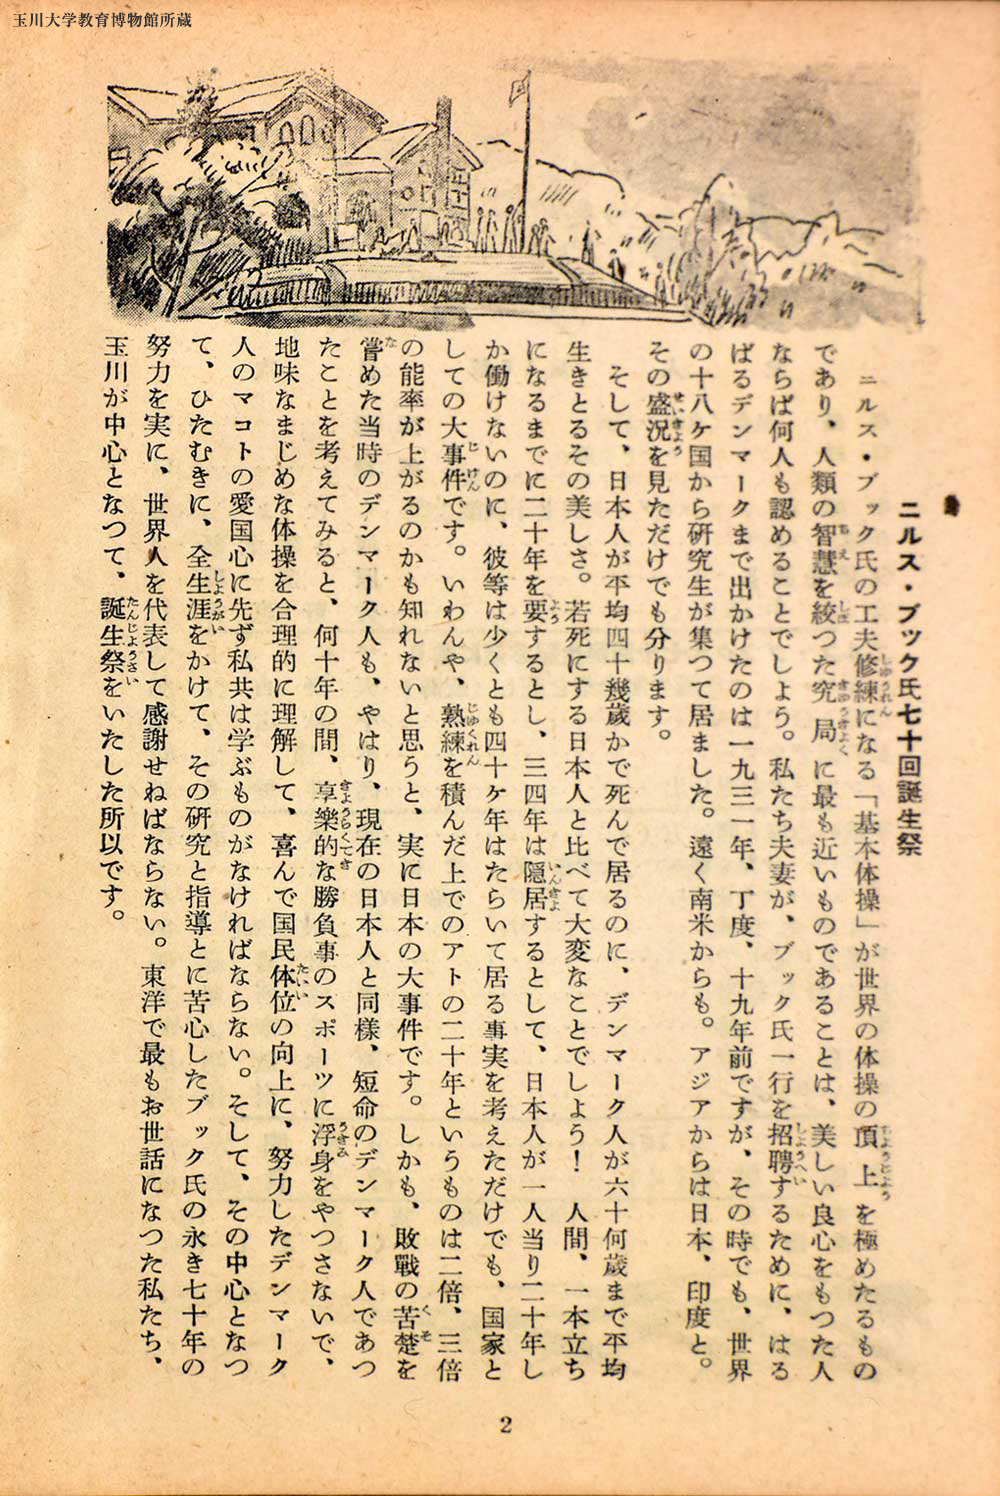 玉川大学教育博物館所蔵
ニルス・ブック氏七十回誕生祭
ニルス・ブック氏の工夫修練になる「基本体操」が世界の体操の頂上を極めたるもの
であり、人類の智慧を絞つた究局に最も近いものであることは、美しい良心をもつた人
ならば何人も認めることでしよう。私たち夫妻が、ブック氏一行を招聘するために、はる
ばるデンマークまで出かけたのは一九三一年、丁度、十九年前ですが、その時でも、世界
の十八ケ国から研究生が集つて居ました。遠く南米からも。アジアからは日本、印度と。
その盛況を見ただけでも分ります。
そして、日本人が平均四十幾歳かで死んで居るのに、デンマーク人が六十何歳まで平均
生きとるその美しさ。若死にする日本人と比べて大変なことでしよう！　人間、一本立ち
になるまでに二十年を要するとし、三四年は隠居するとして、日本人が一人当り二十年し
か働けないのに、彼等は少くとも四十ケ年はたらいて居る事実を考えただけでも、国家と
しての大事件です。いわんや、熟練を積んだ上でのアトの二十年というものは二倍、三倍
の能率が上がるのかも知れないと思うと、実に日本の大事件です。しかも、敗戰の苦楚を
嘗めた当時のデンマーク人も、やはり、現在の日本人と同様、短命のデンマーク人であつ
たことを考えてみると、何十年の間、享樂的な勝負事のスポーツに浮身をやつさないで、
地味なまじめな体操を合理的に理解して、喜んで国民体位の向上に、努力したデンマーク
人のマコトの愛国心に先ず私共は学ぶものがなければならない。そして、その中心となつ
て、ひたむきに、全生涯をかけて、その研究と指導とに苦心したブック氏の永き七十年の
努力を実に、世界人を代表して感謝せねばならない。東洋で最もお世話になつた私たち、
玉川が中心となつて、誕生祭をいたした所以です。
2